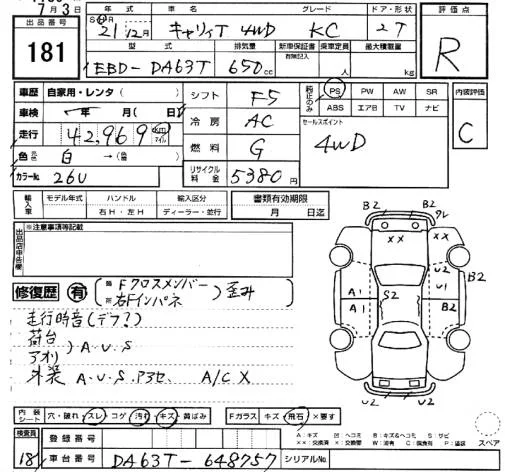 7月3日
出品番号
181
年式
車名
グレード
ドア・形状
評価点
S H R
21年12月
キャリィT 4WD
KC
2T
R
型式
排気量
新車保証書
有無記入
乗車定員
最大積載量
EBD-DA63T
650cc
人
kg
車歴 自家用・レンタ( )
シフト F5
純正のみ
PS PW AW SR
ABS エアB TV ナビ
内装評価
C
車検 年 月( 日)
冷房 AC
セールスポイント
4WD
走行 42,969 km マイル
燃料 G
色 白 →( )
カラーNo. 26U
リサイクル料金 5380円
輸入車
モデル年式
ハンドル
右H・左H
輸入区分
ディーラー・並行
書類有効期限
月 日迄
出品店申告欄
※注意事項等記載
修復歴 有 (Fクロスメンバー 右Fインパネ) 歪み
走行時音(デフ?)
荷台
アオリ
)A・U・S
外装 A・U・S・アセ、A/C X
B2 B2
××
××
A1
A1
S2
U2
U1
B2
U2
B2
B2
内装シート
穴・破れ・スレ・コゲ・汚れ・キズ・黄ばみ
Fガラス キズ・飛石・×要す
A:キズ
U:ヘコミ
B:キズ&ヘコミ
S:サビ
スペア
検査員
181
登録番号
車台番号 DA63T-648757
シリアルNo.